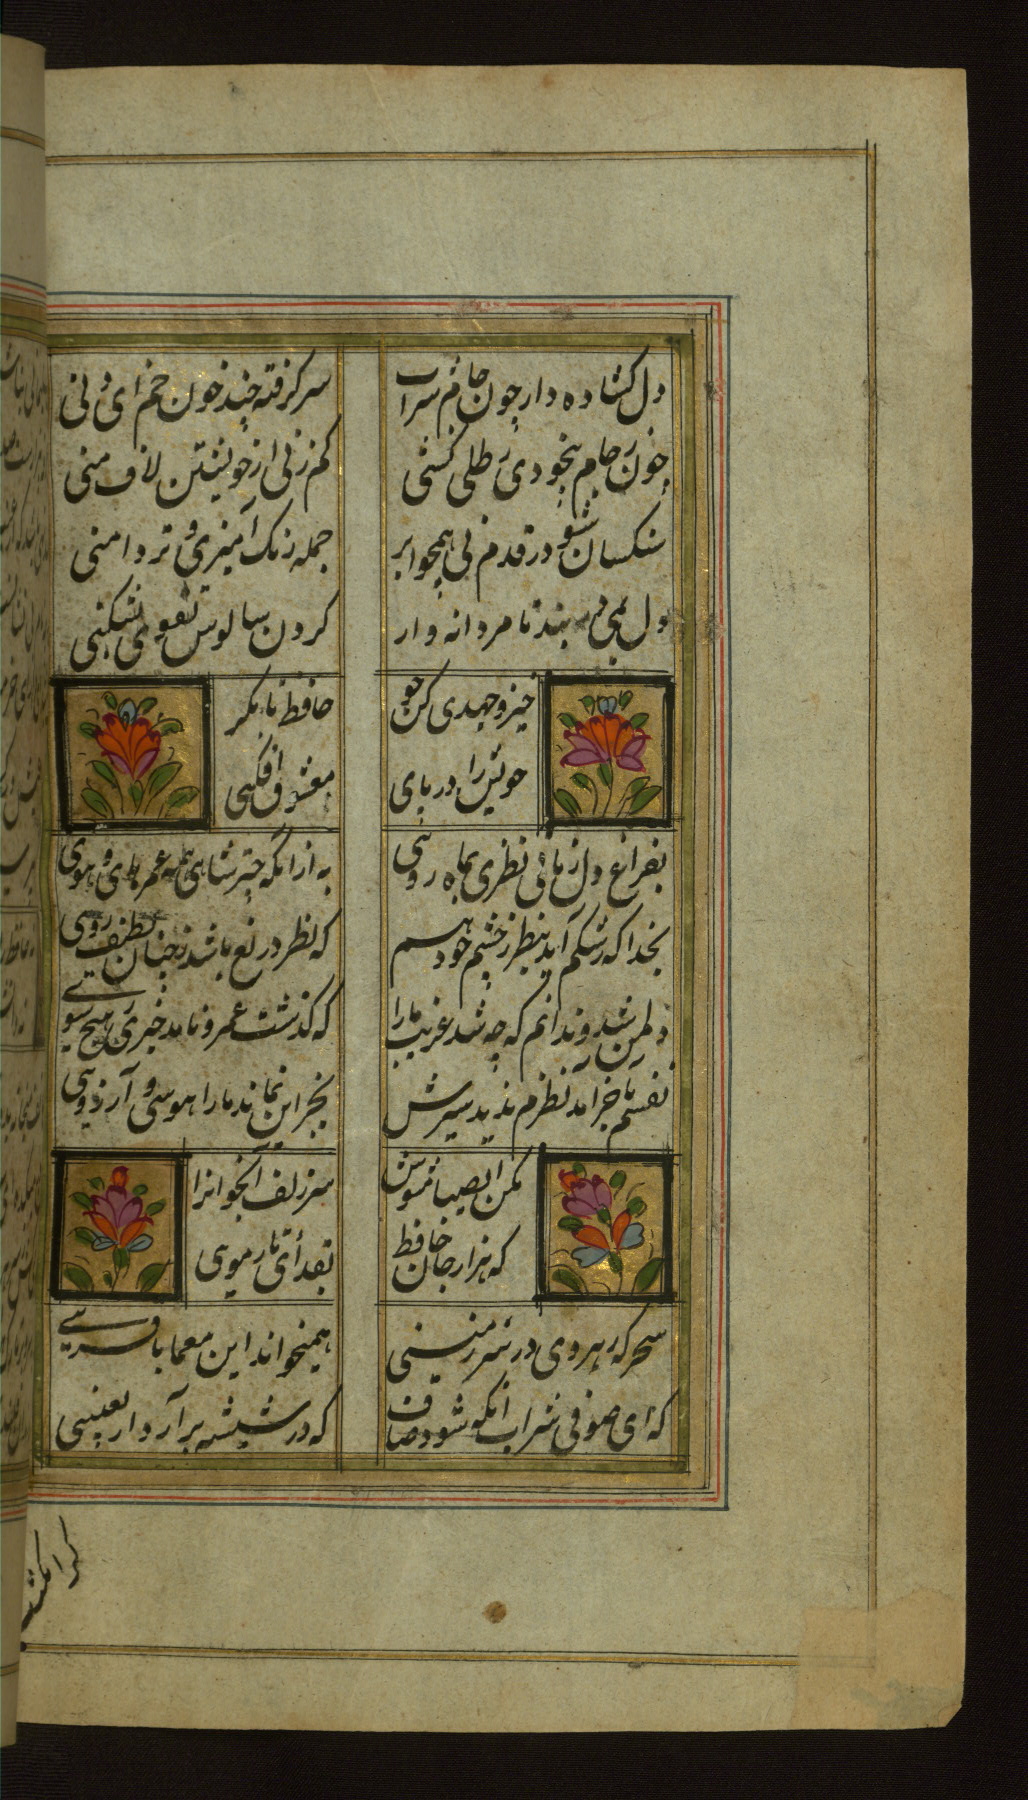 دل کشاده دار چون جام شراب
سر گرفته چند خون خم ای دنی
چون ز جام بیخودی رطلی کشی
کم زنی از خویشتن لاف منی
سنکسان شو در قدم نی همچو ابر
جمله رنک آمیزی و تر دامنی
دل بمی در بند تا مردانه وار
کردن سالوس تقوی بشکنی
خیز و جهدی کن چو
حافظ تا مکر
خویش را در پای
معشوق افکنی
بفراغ دل زمانی نظری بماه روئی
به از انکه چتر شاهی همه عمر های و هوی
بخدا که رشکم آید بنظر ز چشم خود هم
که نظر دریغ باشد ز چنان لطیف روی
دلمن شد و ندانم که چه شد غریب ما را
که گذشت عمر و نامد خبری ز هیچ سویی
نفسم باخر آمد نظرم ندید سیرش
بجز این نماند ما را هوسی و آرزویی
مکن ای صبا مشوش
سر زلف آنخوانرا
که هزار جان حافظ
بفدأی تار مویی
سحر که رهروی در سرزمینی
همیخواند این معما با قرینی
که ای صوفی شراب انکه شود صاف
که در شیشه برآرد اربعینی
کرانکشت